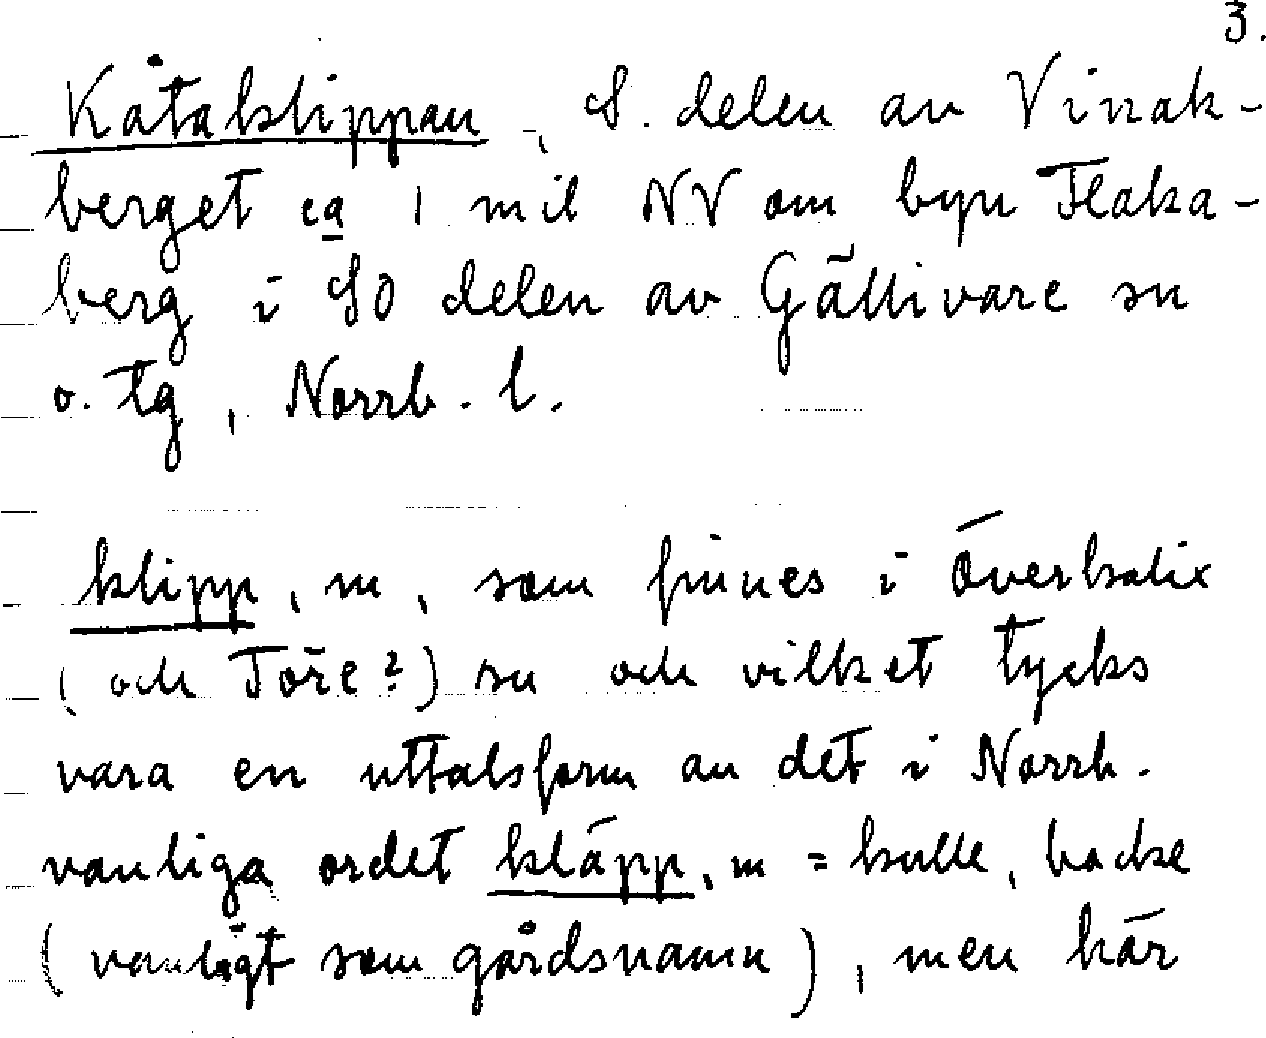 3.
Kåtaklippan, S. delen av Vinak-
berget ca 1 mil NV om byn Flaka-
berg i SO delen av Gällivare sn
o. tg, Norrb. l.
klipp, m, som finnes i Överkalix
(och Töre?) sn och vilket tycks
vara en uttalsform av det i Norrb.
vanliga ordet kläpp, m = kulle, backe
(vanligt som gårdsnamn), men här